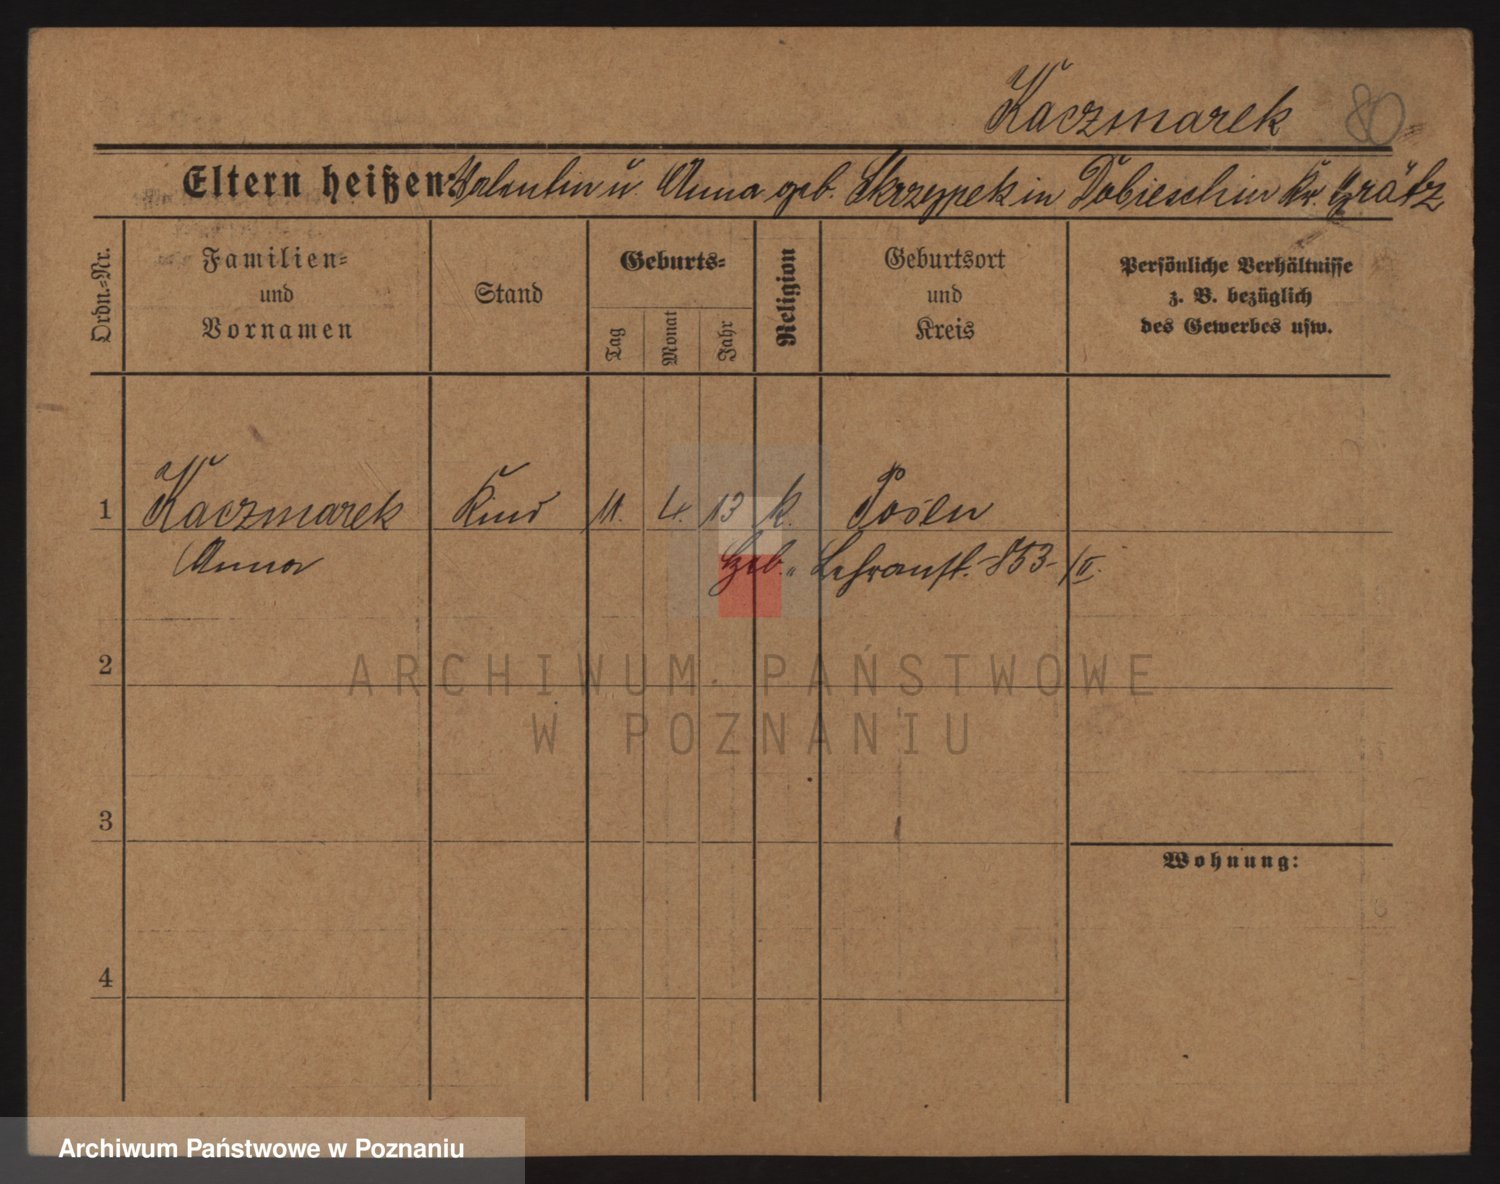 Kaczmarek 80
Eltern heißen: Valentin u Anna geb. Skrzypek in Dobieschin Kr. Grätz
Ordn.-Nr.
Familien-
und
Vornamen
Stand
Geburts-
Tag
Monat
Jahr
Religion
Geburtsort
und
Kreis
Persönliche Verhältnisse
z. B. bezüglich
des Gewerbes usw.
1 Kaczmarek Kind 11. 4. 13 k. Posen
Anna Geb. Lehranst. 853/II.
ARCHIWUM PAŃSTWOWE
W POZNANIU
2
3
Wohnung:
4
Archiwum Państwowe w Poznaniu